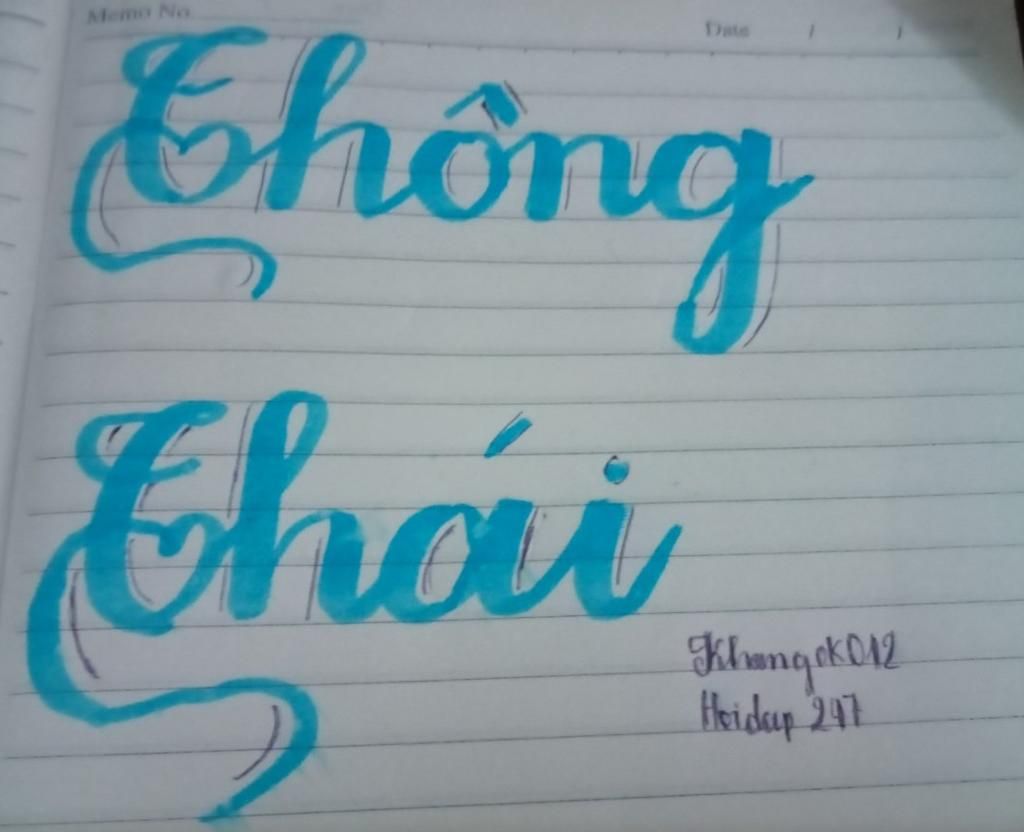 Memo No.
Date / /
Thông
Thái
KhangcK012
Hoidap 247